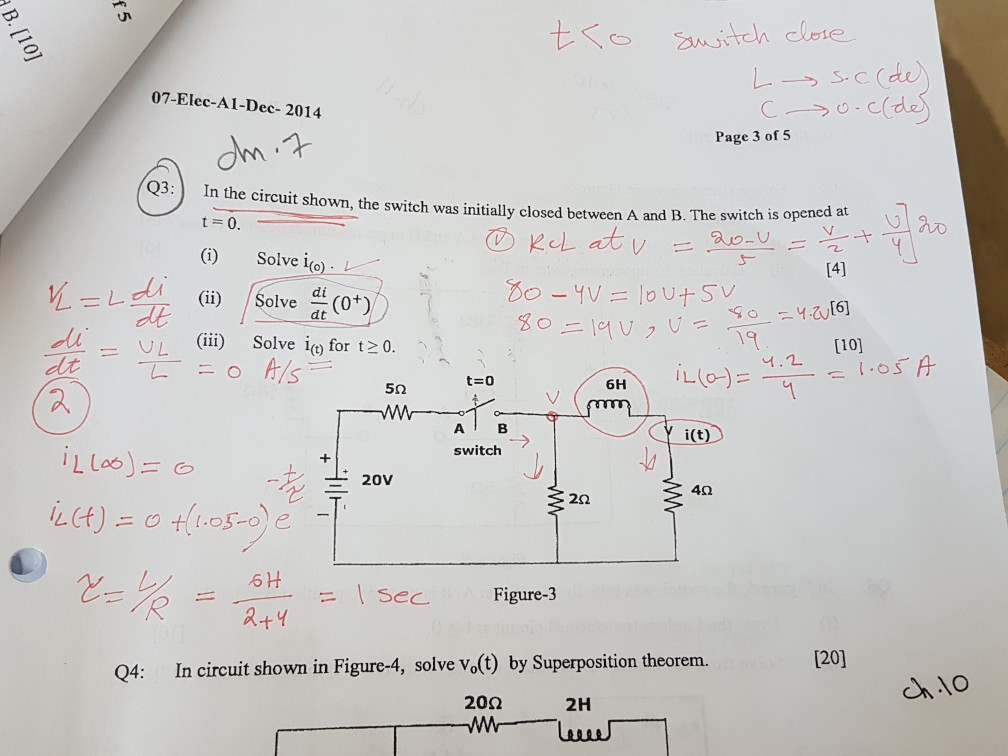 f 5
d B. [10]
t<0 switch close
L → s.c (dc)
C → o.c (dc)
07-Elec-A1-Dec- 2014
Page 3 of 5
Q3: In the circuit shown, the switch was initially closed between A and B. The switch is opened at
t = 0.
KCL at V = 20-V/5 = V/2 + V/4] 20
(i) Solve i(o).
[4]
80 - 4V = 10V + 5V
V_L = L di/dt
(ii) Solve di/dt (0⁺)
[6]
80 = 19V, V = 80/19 = 4.2V
di/dt = V_L/L = 0 A/s
(iii) Solve i(t) for t ≥ 0.
[10]
i_L(0-) = 4.2/4 = 1.05 A
2
5Ω
t=0
6H
V
A
B
switch
i(t)
+
20V
−
2Ω
4Ω
i_L(∞) = 0
i_L(t) = 0 + (1.05-0) e -t/τ
τ = L/R = 6H/2+4 = 1 sec
Figure-3
Q4: In circuit shown in Figure-4, solve vₒ(t) by Superposition theorem.
[20]
ch.10
20Ω
2H